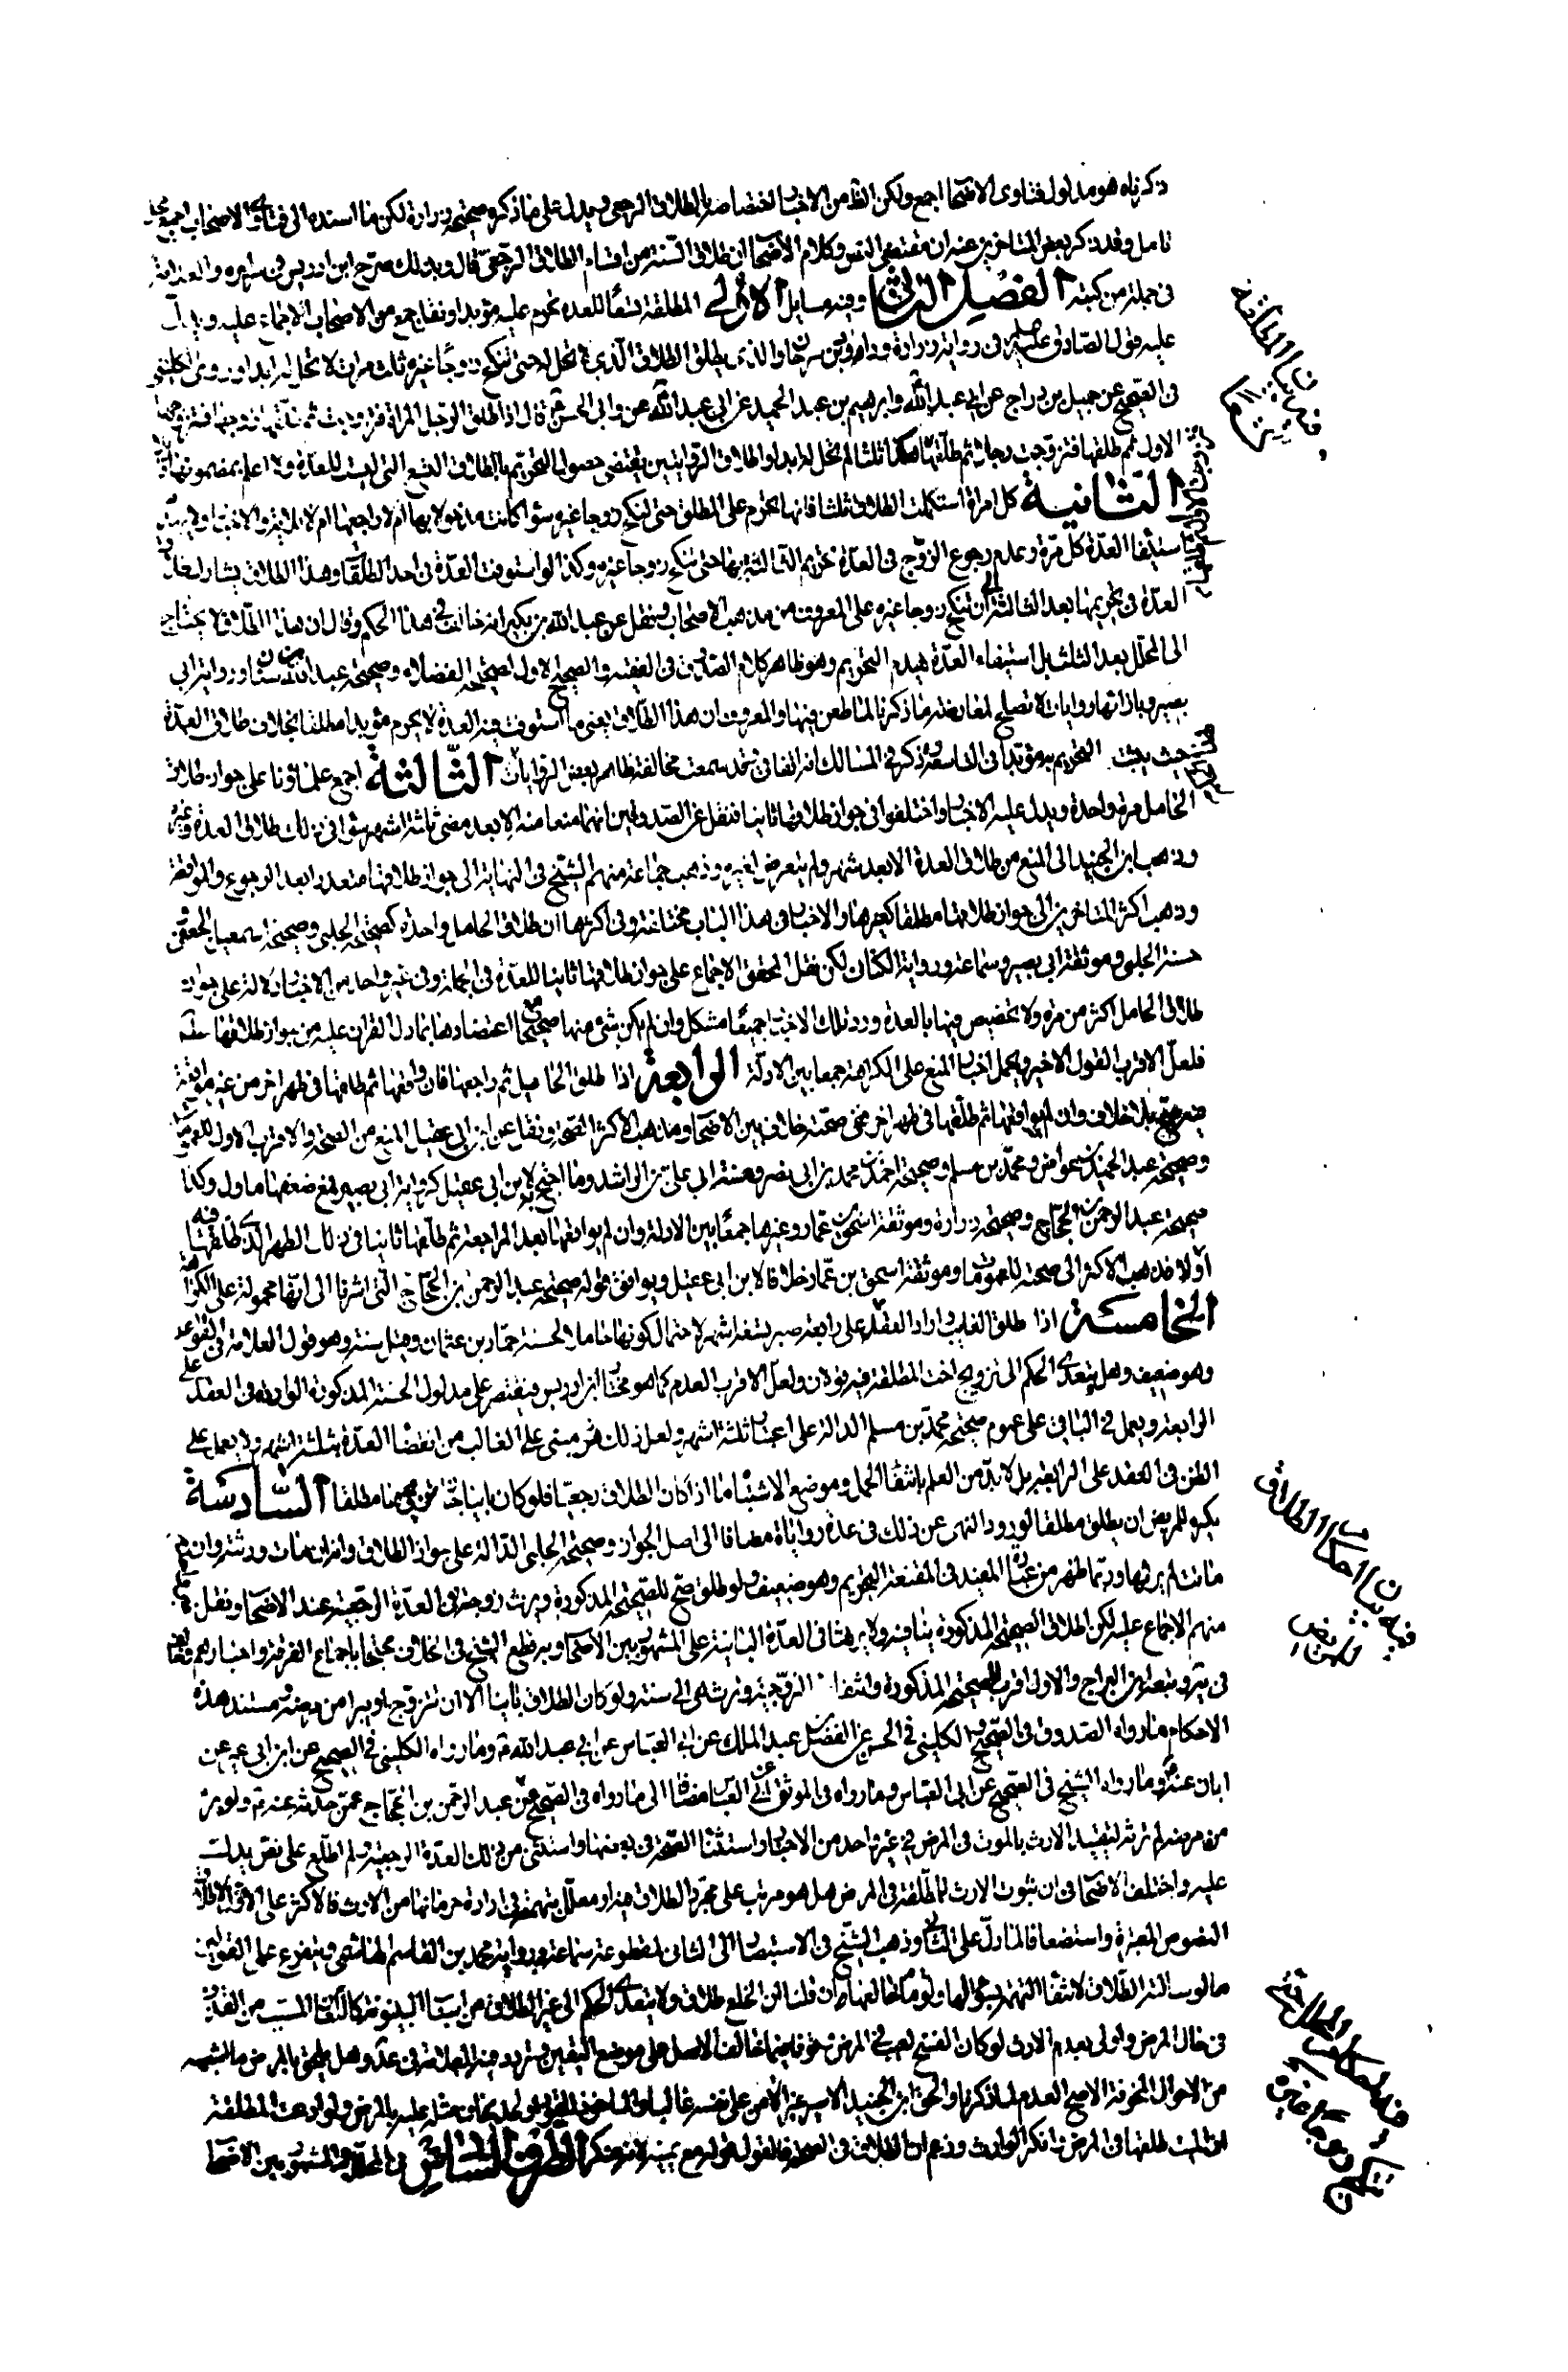 ذكرناه هو مدلول فتاوى الاصحاب اجمع ولكن الظ من الاخبار اختصاصه بالطلاق الرجعي ويدل على ما ذكره صحيحة زرارة لكن ما اسنده الى فتاوى الاصحاب اجمع محل
تامل وقد ذكر بعض المتاخرين عنه ان مقتضى النص وكلام الاصحاب ان طلاق السنة من اقسام الطلاق الرجعي قال وبذلك صرح ابن ادريس في سرائره والعلامة
في جملة من كتبه الفصل الثاني وفيه مسايل الاولى المطلقة تسعا للعدة تحرم عليه مؤبدا ونقل جمع من الاصحاب الاجماع عليه ويدل
عليه قول الصادق في رواية زرارة وداود بن سرحان والذي يطلق الطلاق الذي لا تحل له حتى تنكح زوجا غيره ثلث مرات لا تحل له ابدا وروى الكليني
في الصحيح عن جميل بن دراج عن ابي عبد الله وابرهيم بن عبد الحميد عن ابي عبد الله وابي الحسن قال اذا طلق الرجل المراة فتزوجت ثم طلقها زوجها فتزوجها
الاول ثم طلقها فتزوجت رجلا ثم طلقها هكذا ثلثا لم تحل له ابدا واطلاق الروايتين يقتضي حصول التحريم بالطلاق التسع التي ليست للعدة ولا اعلم بمضمونها
الثانية كل امراة استكملت الطلاق ثلثا فانها تحرم على المطلق حتى تنكح زوجا غيره سواء كانت مدخولا بها ام لا راجعها ام لا للاية والاخبار
استيفا العدة كل مرة وعدم رجوع الزوج في العدة تحريم الثالثة بها حتى تنكح زوجا غيره وكذا لو استوفت العدة في احد الطلقات وهذا الطلاق يشارك طلاق
العدة في تحريمها بعد الثالثة الى ان تنكح زوجا غيره على المعروف من مذهب الاصحاب ونقل عن عبد الله بن بكير انه خالف في هذا الحكم وقال ان هذا الطلاق لا يحتاج
الى محلل بعد الثلث بل استيفاء العدة يهدم التحريم وهو ظاهر كلام الصدوق في الفقيه والصحيح الاول لصحيحة الفضلاء وصحيحة عبد الله بن سنان ورواية ابي
بصير وبازائها روايات لا تصلح لمعارضة ما ذكرنا للمطاعن فيها والمعروف ان هذا الطلاق يعني ما استوفت فيه العدة لا يحرم مؤبدا مطلقا بخلاف طلاق العدة
حيث يثبت التحريم به مؤبدا في التاسعة وذكر في المسالك انه اتفاق وقد سمعت مخالفته ظاهر بعض الروايات الثالثة اجمع علماؤنا على جواز طلاق
الحامل مرة واحدة ويدل عليه الاخبار واختلفوا في جواز طلاقها ثانيا فنقل عن الصدوقين انهما منعا منه الا بعد مضي ثلثة اشهر سواء في ذلك طلاق العدة وغيره
وذهب ابن الجنيد الى المنع من طلاق العدة الا بعد شهر ولم يتعرض لغيره وذهب جماعة منهم الشيخ في النهاية الى جواز طلاقها متعددا بعد الرجوع والمواقعة
وذهب اكثر المتاخرين الى جواز طلاقها مطلقا كغيرها والاخبار في هذا الباب مختلفة وفي اكثرها ان طلاق الحامل واحدة كصحيحة الحلبي وصحيحة اسمعيل الجعفي
حسنة الحلبي وموثقة ابي بصير وسماعة ورواية الكناني لكن نقل المحقق الاجماع على جواز طلاقها ثانيا للعدة في الجملة وفي غير واحد من الاخبار دلالة على جواز
طلاق الحامل اكثر من مرة ولا تخصيص فيها بالعدة ورد تلك الاخبار جميعا مشكل وان لم يكن شيء منها صحيحا مع اعتضادها بما دل القران عليه من جواز طلاقها
فلعل الاقرب القول الاخير ويحمل اخبار المنع على الكراهة جمعا بين الادلة الرابعة اذا طلق الحايل ثم راجعها فان واقعها ثم طلقها في طهر اخر من غير مواقعة
صح بلا خلاف وان لم يواقعها ثم طلقها في طهر اخر ففي صحته خلاف بين الاصحاب ومذهب الاكثر الصحة ونقل عن ابن ابي عقيل المنع من الصحة والاقرب الاول للعمومات
وصحيحة عبد الحميد بن عواض ومحمد بن مسلم وصحيحة احمد بن محمد بن ابي نصر وحسنة ابي علي بن راشد وما احتج به لابن ابي عقيل كرواية ابي بصير مع ضعفها ماول وكذا
صحيحة عبد الرحمن بن الحجاج وصحيحة زرارة وموثقة اسحق بن عمار وغيرها جمعا بين الادلة وان لم يواقعها بعد المراجعة ثم طلقها ثانيا في ذلك الطهر الذي طلقها فيه
اولا فذهب الاكثر الى صحته للعمومات وموثقة اسحق بن عمار خلافا لابن ابي عقيل ويوافق قوله صحيحة عبد الرحمن بن الحجاج التي اشرنا الى انها محمولة على الكراهة
الخامسة اذا طلق الغايب واراد العقد على رابعة صبر تسعة اشهر لاحتمال كونها حاملا لحسنة حماد بن عثمان وقيل سنة وهو قول العلامة في القواعد
وهو ضعيف وهل يتعدى الحكم الى تزويج اخت المطلقة فيه قولان ولعل الاقرب العدم كما هو مختار ابن ادريس فيقتصر على مدلول الحسنة المذكورة الواردة في العقد على
الرابعة ويعمل في الباقي على عموم صحيحة محمد بن مسلم الدالة على اعتبار ثلثة اشهر ولعل ذلك مبني على الغالب من انقضاء العدة بثلثة اشهر ولا يعمل على
الظن في العقد على الرابعة بل لا بد من العلم بانتفاء الحمل وموضع الاشتباه ما اذا كان الطلاق رجعيا فلو كان باينا جاز مطلقا السادسة
يكره للمريض ان يطلق مطلقا لورود النهي عن ذلك في عدة روايات مضافا الى اصل الجواز وصحيحة الحلبي الدالة على جواز الطلاق وانه ان مات ورثته وان
ماتت لم يرثها وربما ظهر من عبارة المفيد في المقنعة التحريم وهو ضعيف ولو طلق صح للصحيحة المذكورة ويرث زوجته في العدة الرجعية عند الاصحاب ونقل جماعة
منهم الاجماع عليه لكن اطلاق الصحيحة المذكورة ينافيه ولا يرثها في العدة الباينة على المشهور بين الاصحاب وبه قطع الشيخ في الخلاف محتجا باجماع الفرقة واخبارهم
في ية وتبعه ابن البراج والاول اقرب للصحيحة المذكورة وانتفاء الزوجية وترثه هي الى سنة ولو كان الطلاق باينا الا ان تتزوج او يبرا من مرضه ومستند هذه
الاحكام ما رواه الصدوق في الصحيح والكليني في الحسن عن الفضل بن عبد الملك عن ابي العباس عن ابي عبد الله وما رواه الكليني في الصحيح عن ابن ابي عمير عن
ابان عنه وما رواه الشيخ في الصحيح عن ابي العباس وما رواه في الموثق عن ابي العباس مضافا الى ما رواه في الصحيح عن عبد الرحمن بن الحجاج عمن حدثه عنه ولو برئ
من مرضه لم ترثه لتقييد الارث بالموت في المرض في غير واحد من الاخبار واستثنا الصحة في بعضها واستثنى من ذلك العدة الرجعية ولم اطلع على نص يدل
عليه واختلف الاصحاب في ان ثبوت الارث للمطلقة في المرض هل هو مرتب على مجرد الطلاق فيه او معلل بتهمته في ارادة حرمانها من الارث فالاكثر على الاول لاطلاق
النصوص المعتبرة واستضعافا لما دل على الثاني وذهب الشيخ في الاستبصار الى الثاني لمقطوعة سماعة ورواية محمد بن القاسم الهاشمي ويتفرع على القولين
ما لو سالته الطلاق لانتفاء التهمة بسؤالها ولو خالعها فان قلنا ان الخلع طلاق ولا يتعدى الحكم الى غير الطلاق من اسباب البينونة كاللعان المسبب من القذف
في حال المرض واولى بعدم الارث لو كان الفسخ لعيب في المرض وقوفا فيما خالف الاصل على موضع اليقين وتردد فيه العلامة في عد وهل يلحق بالمرض ما اشبهه
من الاحوال المخوفة الاصح العدم لما ذكرنا والحق ابن الجنيد الاسير غير الامن على نفسه غالبا والماخوذ للقود او لحد يخاف مثله عليه بالمريض ولو ادعت المطلقة
ان الميت طلقها في المرض وانكر الوارث وزعم ان الطلاق في الصحة فالقول قوله مع يمينه لانه منكر الطرف السادس في المحلل والمشهور بين الاصحاب
في بيان احكام الطلاق
للمريض